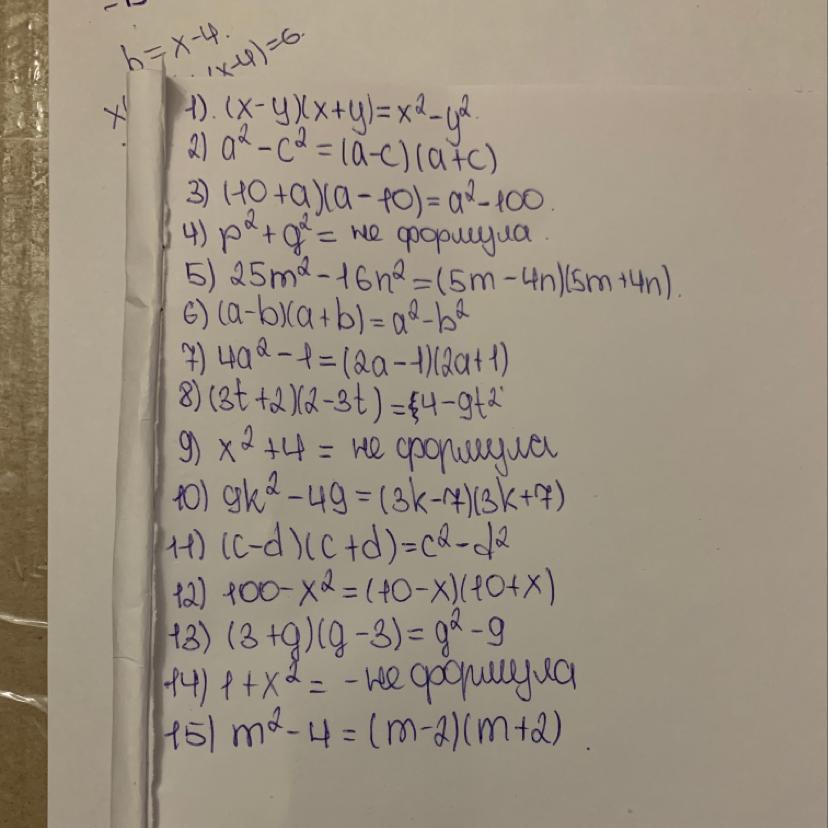 b=x-4.
(x-4)=6.
1). (x-y)(x+y)=x²-y².
2) a²-c²=(a-c)(a+c)
3) (10+a)(a-10)=a²-100.
4) p²+g²= не формула.
5) 25m²-16n²=(5m-4n)(5m+4n).
6) (a-b)(a+b)=a²-b²
7) 4a²-1=(2a-1)(2a+1)
8) (3t+2)(2-3t)=4-9t²
9) x²+4= не формула
10) 9k²-49=(3k-7)(3k+7)
11) (c-d)(c+d)=c²-d²
12) 100-x²=(10-x)(10+x)
13) (3+g)(g-3)=g²-9
14) 1+x²= - не формула
15) m²-4=(m-2)(m+2).